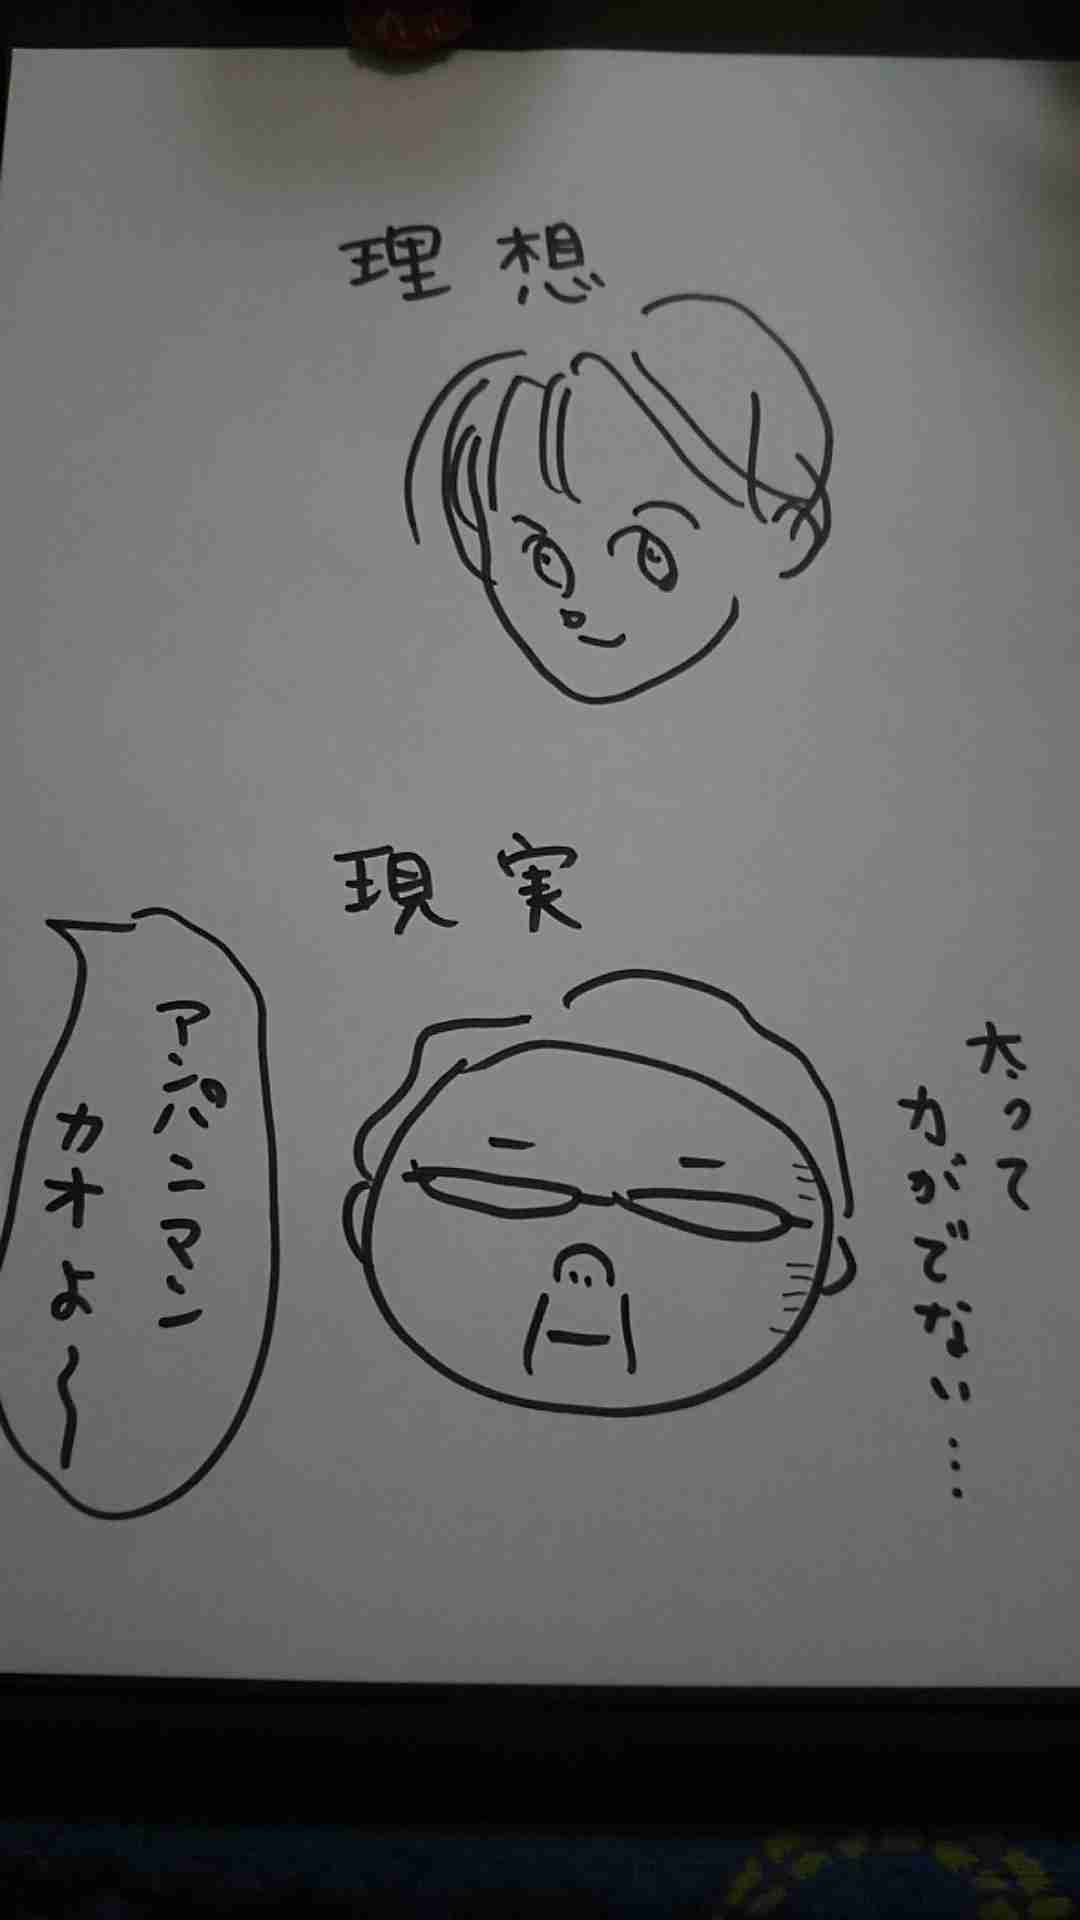 理想
現実
太って
力がでない…
アンパンマン
カオよ〜